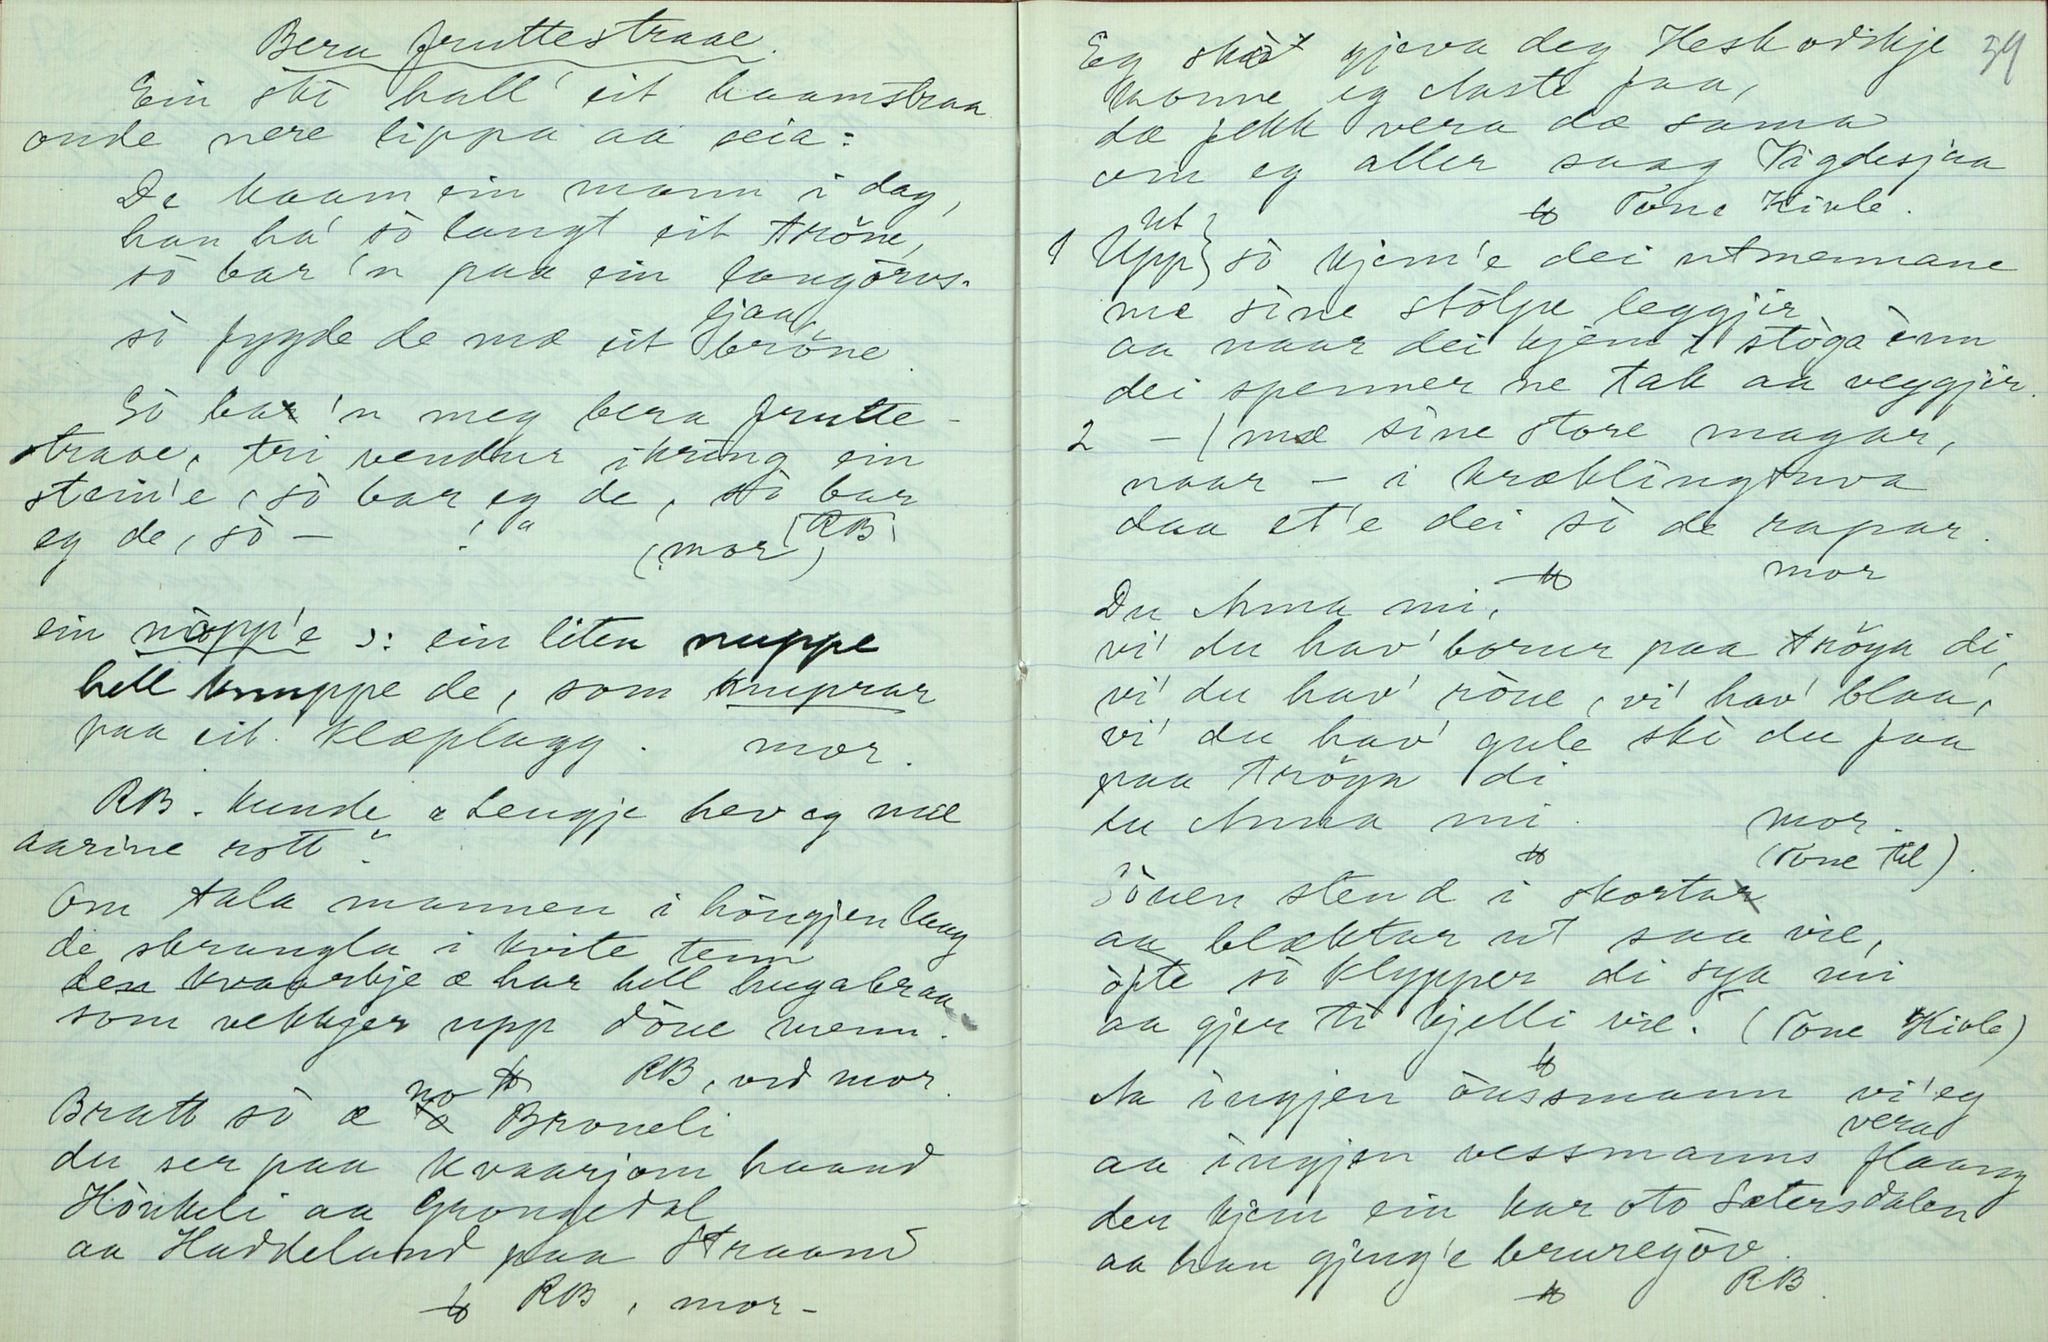 Bera fruttestraae.
Ein ski hall' eit haamstraa
onde nere lippa aa seia:
De kaam ein mann i dag,
han ha' so langt eit tröne,
so bar 'n paa ein langörvs-
ljaa,
so fygde de mæ eit bröne
So bar 'n meg bera frutte-
straae, tri vendur ikring ein
stein'e, so bar eg de, so bar
eg de, so – !"
(mor) RB
ein nöpp'e ɔ: ein liten nuppe
hell knuppe de, som knuprar
paa eit klæplagg. mor.
RB. kunde "Lengje hev eg mæ
aarine rott"
Om tala mannen i höngjen laag
de skrangla i kvite tenn
den kvaarkje æ har hell hugabraa
som vekkjer upp döue menn.
RB, vid mor
Bratt so æ no Broneli
du ser paa kvaarjom haand
Hönkeli aa Grongedal
aa Haddeland paa Straand
RB, mor –
34
Eg skaæ gjeva deg Heskodskje
konne eg
dæ fekk vera dæ sama
om eg aller saag Vigdesjaa
Tone Kivle.
1 Upp } Ut } so kjem'e dei utmennane
mæ sine stolpe leggjir
aa naar dei kjem i stoga inn
dei spenner ne tak aa veggjir.
2 – ( mæ sine store magar,
naar – i kræklingtuva
daa et'e dei so de rapar.
mor
Du Anna mi,
vi' du hav' borur paa tröya di,
vi' du hav' röue, vi' hav' blaa,
vi' du hav' gule ski du faa
paa tröya di
du Anna mi. mor.
(Tone til).
Söuen stend i skortar
aa blæktar ut saa vie,
ofte so klypper di sya mi
aa gjer ti kjelli vie. (Tone Kivle)
Aa ingjen öussmann vi' eg
vera
aa ingjen vessmanns flaang
der kjem ein kar oto Sætersdalen
aa han gjeng'e bruregöv.
RB.